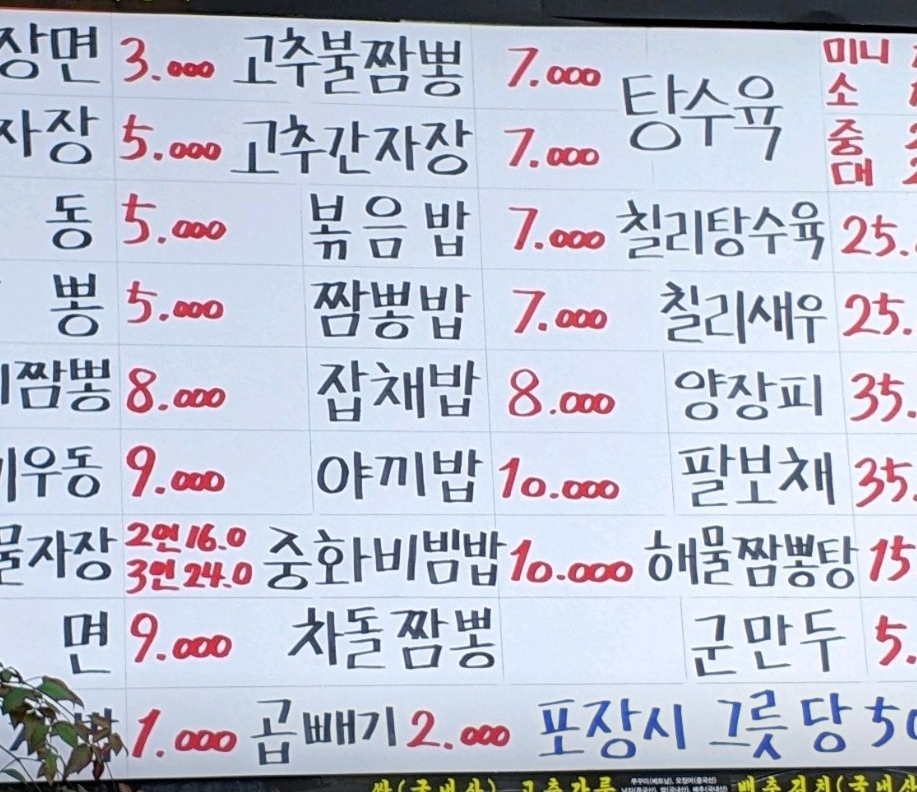 장면 3.000 고추불짬뽕 7.000 탕수육 미니
소
자장 5.000 고추간자장 7.000 중
대
동 5.000 볶음밥 7.000 칠리탕수육 25.
뽕 5.000 짬뽕밥 7.000 칠리새우 25.
짬뽕 8.000 잡채밥 8.000 양장피 35.
우동 9.000 야끼밥 10.000 팔보채 35.
물자장 2인 16.0 중화비빔밥 10.000 해물짬뽕탕 15
3인 24.0
면 9.000 차돌짬뽕 군만두 5.
1.000 곱빼기 2.000 포장시 그릇당 50
쌀(국내산) 고추가루 배추김치(국내산